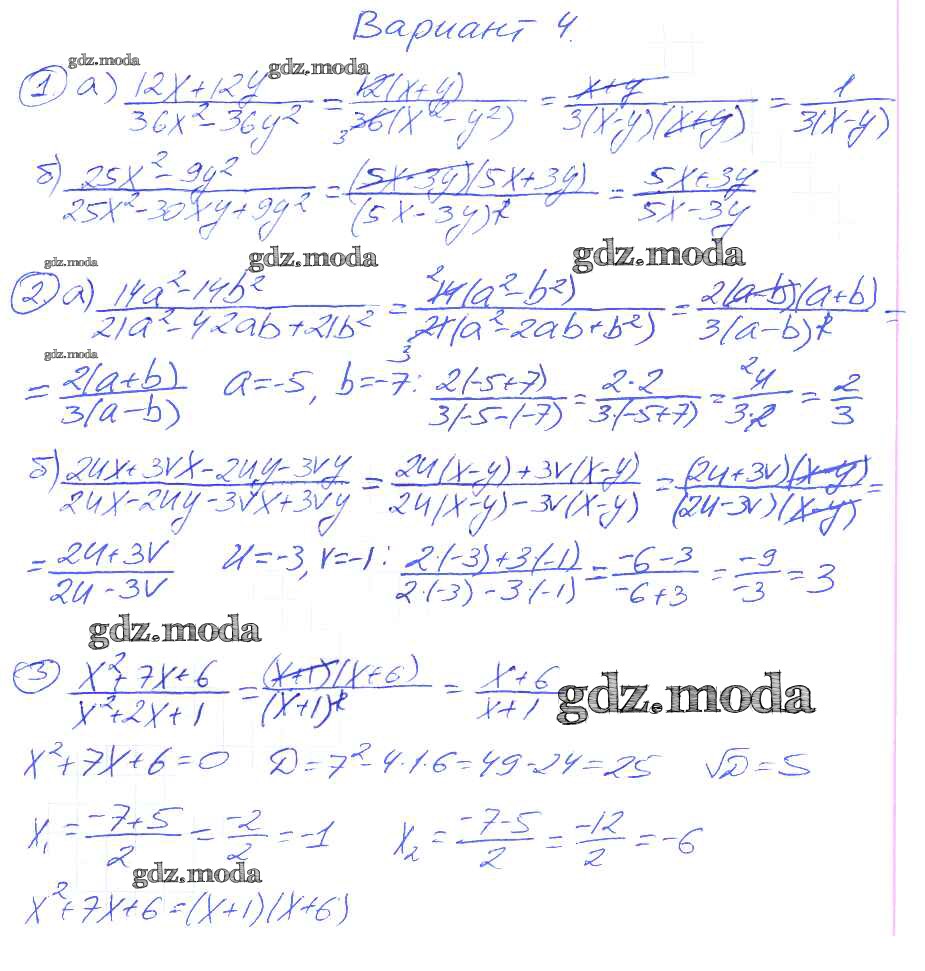 Вариант 4.
gdz.moda gdz.moda
① а) (12x+12y)/(36x²-36y²) = 12(x+y)/36(x²-y²) = (x+y)/3(x-y)(x+y) = 1/3(x-y)
3
б) (25x²-9y²)/(25x²-30xy+9y²) = (5x-3y)(5x+3y)/(5x-3y)² = (5x+3y)/(5x-3y)
gdz.moda gdz.moda gdz.moda
② а) (14a²-14b²)/(21a²-42ab+21b²) = ²14(a²-b²)/21(a²-2ab+b²) = 2(a-b)(a+b)/3(a-b)² =
3
gdz.moda
= 2(a+b)/3(a-b) a=-5, b=-7: 2(-5+7)/3(-5-(-7) = 2·2/3·(-5+7) = ²4/3·2 = 2/3
б) (2ux+3vx-2uy-3vy)/(2ux-2uy-3vx+3vy) = (2u(x-y)+3v(x-y))/(2u(x-y)-3v(x-y)) = (2u+3v)(x-y)/(2u-3v)(x-y) =
= (2u+3v)/(2u-3v) u=-3, v=-1: (2·(-3)+3(-1))/(2·(-3)-3·(-1)) = (-6-3)/(-6+3) = -9/-3 = 3
gdz.moda
③ (x²+7x+6)/(x²+2x+1) = (x+1)(x+6)/(x+1)² = (x+6)/(x+1) gdz.moda
x²+7x+6=0 D=7²-4·1·6=49-24=25 √D=5
x₁ = (-7+5)/2 = -2/2 = -1 x₂ = (-7-5)/2 = -12/2 = -6
gdz.moda
x²+7x+6=(x+1)(x+6)